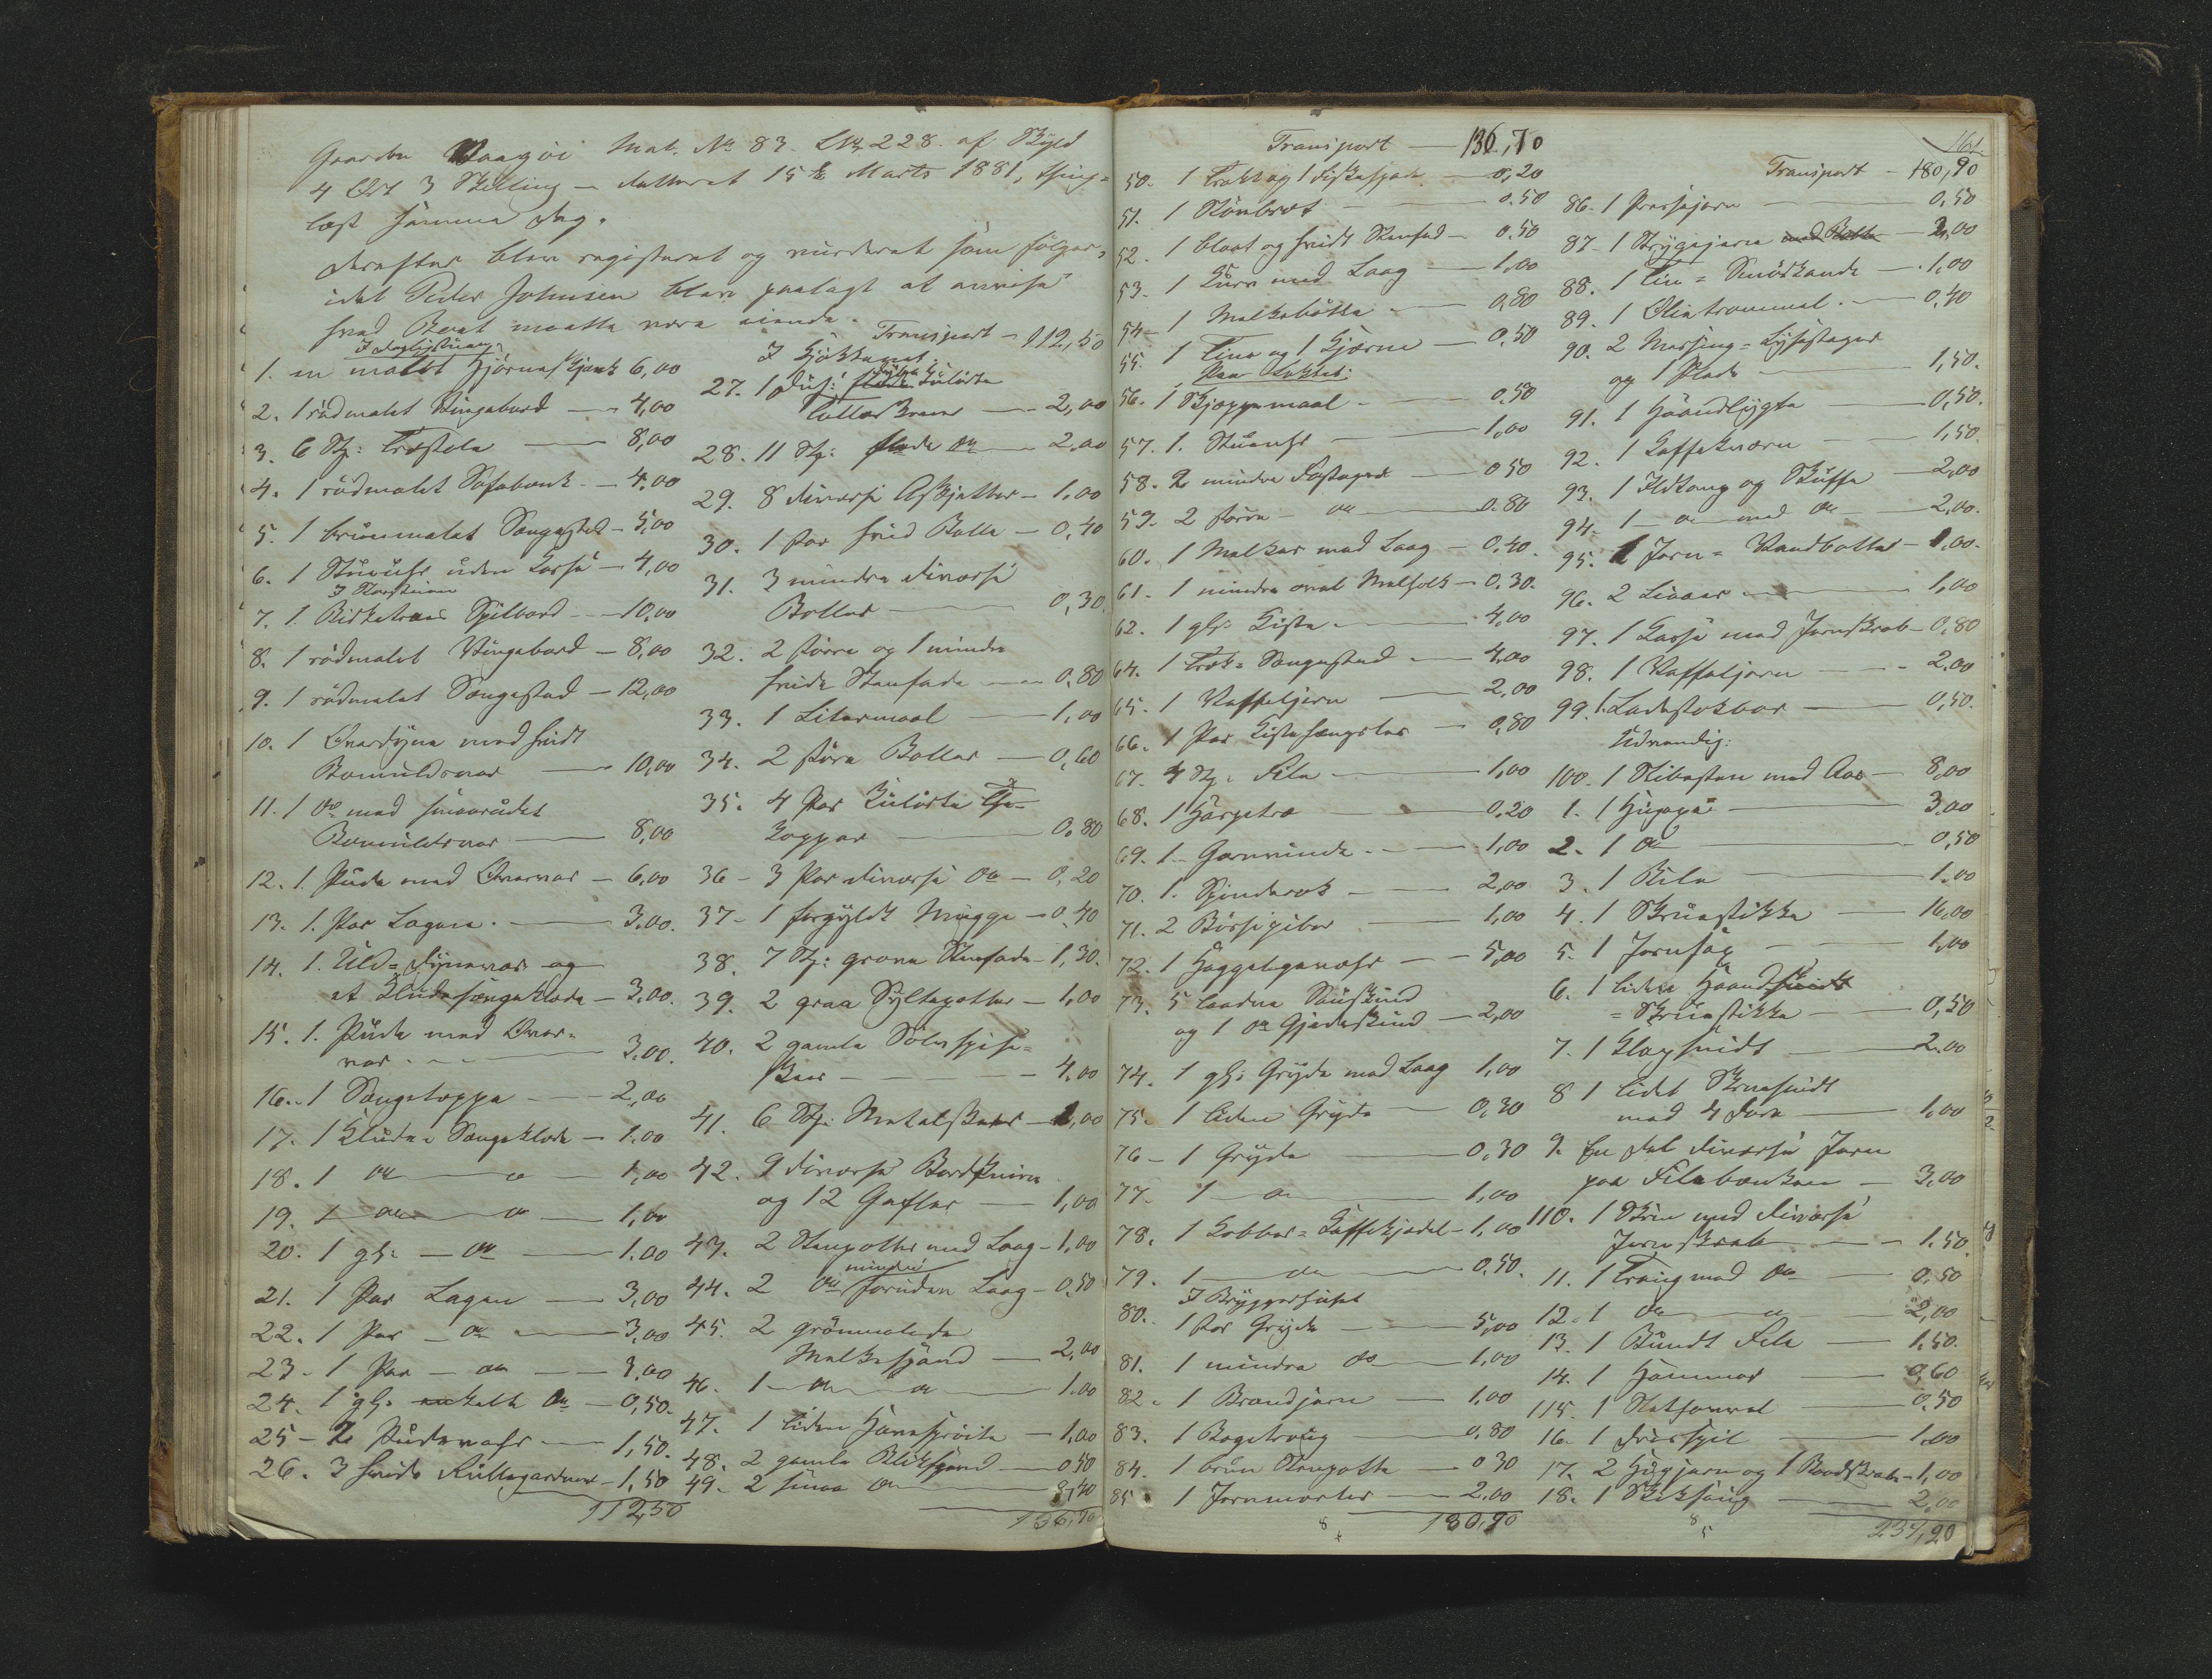 Gaarden Vaagöi Mat. No 83. LNo 228. af Skyld
4 Ort 3 Skilling — dateret 15de Marts 1881, thing-
læst samme Dag.
Derefter blev registeret og vurderet som følger,
idet Peder Johnsen blev paalagt at anvise
hvad Boet maatte være eiende.
I Dagligstuen
1. en malet Hjørneskjænk 6,00
2. 1 rödmalet Vingebord — 4,00
3. 6 Stk: Træstole — 8,00
4. 1 rödmalet Sofabænk — 4,00
5. 1 brünmalet Sengested — 5,00
6. 1 Stueuhr uden Kasse — 4,00
7. 1. Birketræes Spilbord — 10,00
8. 1 rödmalet Vingebord — 8,00
9. 1 rödmalet Sengestad — 12,00
10. 1 Overdyne med hvidt
Bomuldsvar — 10,00
11. 1 do med smaarudet
Bomuldsvar — 8,00
12. 1. Pude med Overvar — 6,00
13. 1. Par Lagen — 3,00.
14. 1. Uld-Dynevar og
et Kludesengeklæde — 3,00.
15. 1. Pude med Over-
var — 3,00.
16. 1 Sengeteppe — 2,00
17. 1 Klude-Sengeklæde — 1.00
18. 1 do do — 1,00
19. 1 do do — 1,00
20. 1 gl: — do — 1.00
21. 1 Par Lagen — 3,00
22. 1 Par — do — 3,00
23. 1 Par — do — 3,00
24. 1 gl. enkelt do — 0,50.
25 - 2 Pudevahr — 1,50.
26. 3 hvide Rullegardiner — 1,50
112,50
Transport — 112,50
I Kjøkkenet.
27. 1 Dus: dybe kulørte
Tallerkener — 2,00
28. 11 Stk: flade do — 2,00
29. 8 diverse Asjetter — 1,00
30. 1 stor hvid Bolle — 0,40
31. 3 mindre diverse
Boller — 0,30.
32. 2 større og 1 mindre
hvide Stenfade — 0,80
33. 1 Litermaal — 1,00
34. 2 større Boller — 0,60
35. 4 Par Kulørte The-
Kopper — 0.80
36 - 3 Par diverse do — 0,20
37 - 1 forgyldt Mugge — 0,40
38. 7 Stk: grove Stenfade — 1,30.
39. 2 graa Syltepotter — 1,00
40. 2 gamle Sølvspise-
skeer — 4,00
41. 6 Stk: Metalskeer — 1,00
42. 9 diverse Bordknive
og 12 Gafler — 1,00
43. 2 Stenpotter med Laag — 1,00
44. 2 do mindre foruden Laag — 0,50
45. 2 grönmalede
Melkespand — 2,00
46. 1 do do — 1.00
47. 1 liden Havesprøite — 1,00
48. 2 gamle Blikspand — 0,50
49. 2 smaa do — 0,40
136,70
Transport — 136,70
50. 1 Trakt og 1 Fiskespade — 0,20
51. 1 Skönbret — 0.50
52. 1 blaat og hvidt Stenfad — 0.50
53. 1 Kurv med Laag — 1,00
54 - 1 Melkebøtte — 0,80
55. 1 Tine og 1 Kjærne — 0,50
Paa Loftet:
56. 1 Skjeppemaal — 0.50
57. 1. Stueuhr — 1,00
58. 2 mindre Fastager — 0 50
59. 2 større do — 0.80
60. 1 Melkar med Laag — 0,40.
61. 1 mindre oval Melholk — 0.30.
62. 1 gl: Kiste — 4,00
64. 1 Træk-Sengestad — 4,00
65. 1 Vaffeljern — 2,00
66. 1 Par Kistehængsler — 0,80
67. 4 Stk: File — 1,00
68. 1 Harpetræ — 0,20
69. 1 Garnvinde — 1,00
70. 1. Spinderok — 2,00
71. 2 Børsepiber — 1,00
72. 1 Haggelgevæhr — 5,00
73. 5 laadne Saueskind
og 1 do Gjedeskind — 2,00
74. 1 gl: Gryde med Laag 1,00
75. 1 liden Gryde — 0,30
76 - 1 Gryde — 0,30
77. 1 do — 1,00
78. 1 Kobber-Kaffekjedel — 1,00
79. 1 do — 0,50.
I Bryggerhuset
80. 1 stor Gryde — 5,00
81. 1 mindre do — 1,00
82. 1 Brandjern — 1,00
83. 1 Bagetrug — 0,80
84. 1 brun Stenpotte — 0 30
85. 1 Jernmorter — 2.00
180,90
161.
Transport — 180,90
86. 1 Pressejern — 0,50
87 - 1 Strygejern — 2,00
88. 1 Tin-Smørkande — 1,00
89. 1 Olietrommel — 0,40
90. 2 Messing-Lysestager
og 1 Plade — 1,50.
91. 1 Haandlygte — 0,50.
92. 1 Kaffekværn — 1,50
93. 1 Ildtang og Skuffe — 2,00
94. 1 — do med do — 2,00.
95. 1 Jern-Vandbøtter — 1,00.
96. 2 Liaaer — 1,00
97. 1 Kasse med Jernskrab — 0,80
98. 1 Vaffeljern — 2.00
99. 1 Ladestokbor — 0,50.
Udvendig:
100. 1 Slibesten med Aas — 8,00
1. 1 Huggaxe — 3,00
2. 1 do — 0,50
3. 1 Bile — 1.00
4. 1 Skruestikke — 16,00
5. 1 Jernsax — 1,00
6. 1 liden Haand
-Skruestikke — 0,50
7. 1 Klapsnidt — 2.00
8 1 lidet Skruesnidt
med 4 Jern — 1,00
9. En Del diverse Jern
paa Filebænken — 3,00
110. 1 Skrin med diverse
Jernskrab — 1.50
11. 1 Traug med do — 0,50
12. 1 do do — 2,00
13. 1 Bundt File — 1,50.
14. 1 Hammer — 0,60
115. 1 Slethøvel — 0.50
16. 1 Drivspil — 1,00
17. 2 Hugjern og 1 Baadskrabe — 1,00
18. 1 Stiksaug — 2,00
237,20